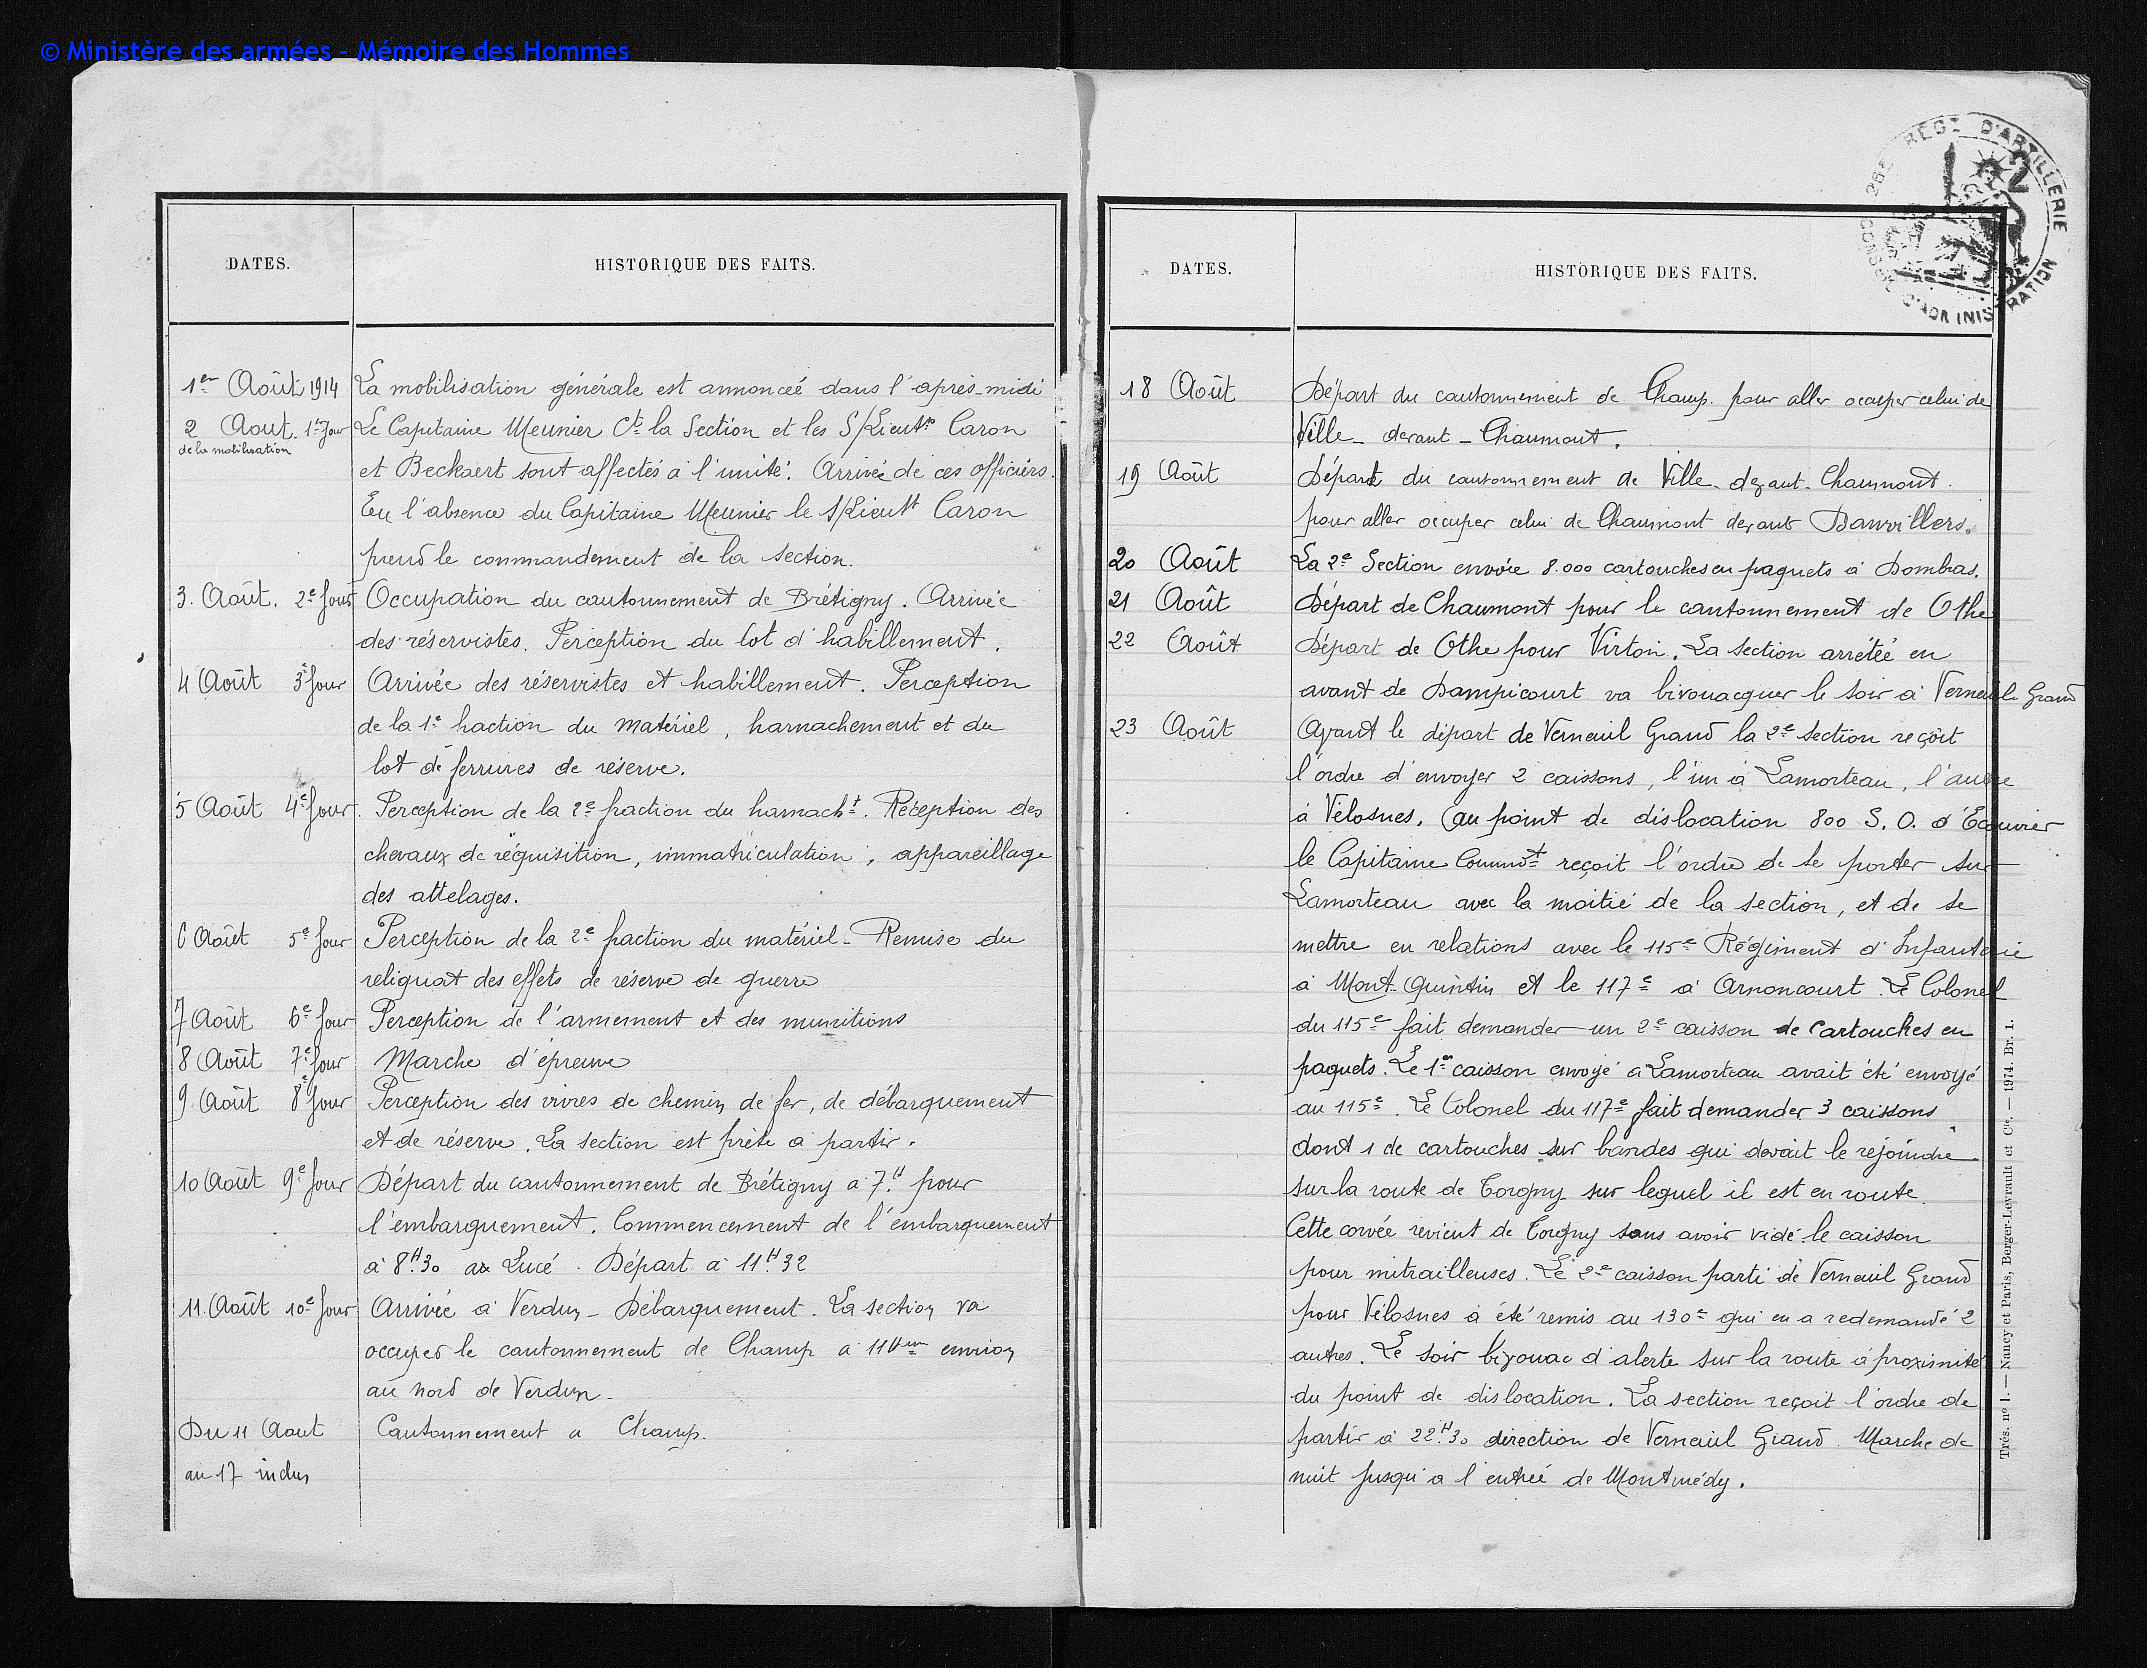 © Ministère des armées - Mémoire des Hommes
DATES. HISTORIQUE DES FAITS.
1er Août 1914 La mobilisation générale est annoncée dans l'après-midi
2 Aout. 1er Jour Le Capitaine Meunier Ct la Section et les S/Lieutts Caron
de la mobilisation
et Beckaert sont affectés à l'unité. Arrivée de ces officiers.
En l'absence du Capitaine Meunier le S/Lieutt Caron
prend le commandement de la section.
3. Août. 2e Jour Occupation du cantonnement de Brétigny. Arrivée
des réservistes. Perception du lot d'habillement.
4 Août 3e Jour Arrivée des réservistes et habillement. Perception
de la 1e fraction du matériel, harnachement et du
lot de ferrures de réserve.
5 Août 4e Jour. Perception de la 2e fraction du harnacht. Réception des
chevaux de réquisition, immatriculation, appareillage
des attelages.
6 Août 5e Jour Perception de la 2e fraction du matériel - Remise du
reliquat des effets de réserve de guerre
7 Août 6e Jour Perception de l'armement et des munitions
8 Août 7e Jour Marche d'épreuve
9 Août 8e Jour Perception des vivres de chemin de fer, de débarquement
et de réserve. La section est prête à partir.
10 Août 9e Jour Départ du cantonnement de Brétigny à 7H pour
l'embarquement. Commencement de l'embarquement
à 8H.30 au Lucé. Départ à 11H.32
11. Août 10e Jour Arrivée à Verdun - Débarquement. La section va
occuper le cantonnement de Champ à 11 Km environ
au nord de Verdun -
Du 11 Aout Cantonnement a Champ.
au 17 inclus
26e REGt D'ARTILLERIE
CONSEIL D'ADMINISTRATION
2
DATES. HISTORIQUE DES FAITS.
18 Août Départ du cantonnement de Champ pour aller occuper celui de
Ville - devant - Chaumont.
19 Août Départ du cantonnement de Ville - devant - Chaumont
pour aller occuper celui de Chaumont devant Damvillers.
20 Août La 2e Section envoie 8.000 cartouches en paquets à Dombras.
21 Août Départ de Chaumont pour le cantonnement de Othe
22 Août Départ de Othe pour Virton. La section arrêtée en
avant de Dampicourt va bivouacquer le soir à Verneuil - Grand
23 Août Avant le départ de Verneuil Grand la 2e section reçoit
l'ordre d'envoyer 2 caissons, l'un à Lamorteau, l'autre
à Vélosnes. Au point de dislocation 800 S. O. d'Ecouvier
le Capitaine Commdt reçoit l'ordre de se porter sur
Lamorteau avec la moitié de la section, et de se
mettre en relations avec le 115e Régiment d'Infanterie
à Mont-Quintin et le 117e à Arnoncourt. Le Colonel
du 115e fait demander un 2e caisson de cartouches en
paquets. Le 1er caisson envoyé à Lamorteau avait été envoyé
au 115e. Le Colonel du 117e fait demander 3 caissons
dont 1 de cartouches sur bandes qui devait le rejoindre
sur la route de Torgny sur lequel il est en route.
Cette corvée revient de Torgny sans avoir vidé le caisson
pour mitrailleuses. Le 2e caisson parti de Verneuil Grand
pour Vélosnes a été remis au 130e qui en a redemandé 2
autres. Le soir bivouac d'alerte sur la route à proximité
du point de dislocation. La section reçoit l'ordre de
partir à 22H.30 direction de Verneuil Grand. Marche de
nuit jusqu'à l'entrée de Montmédy.
Trés. no 1. — Nancy et Paris, Berger-Levrault et Cie. — 1974. Br. 1.